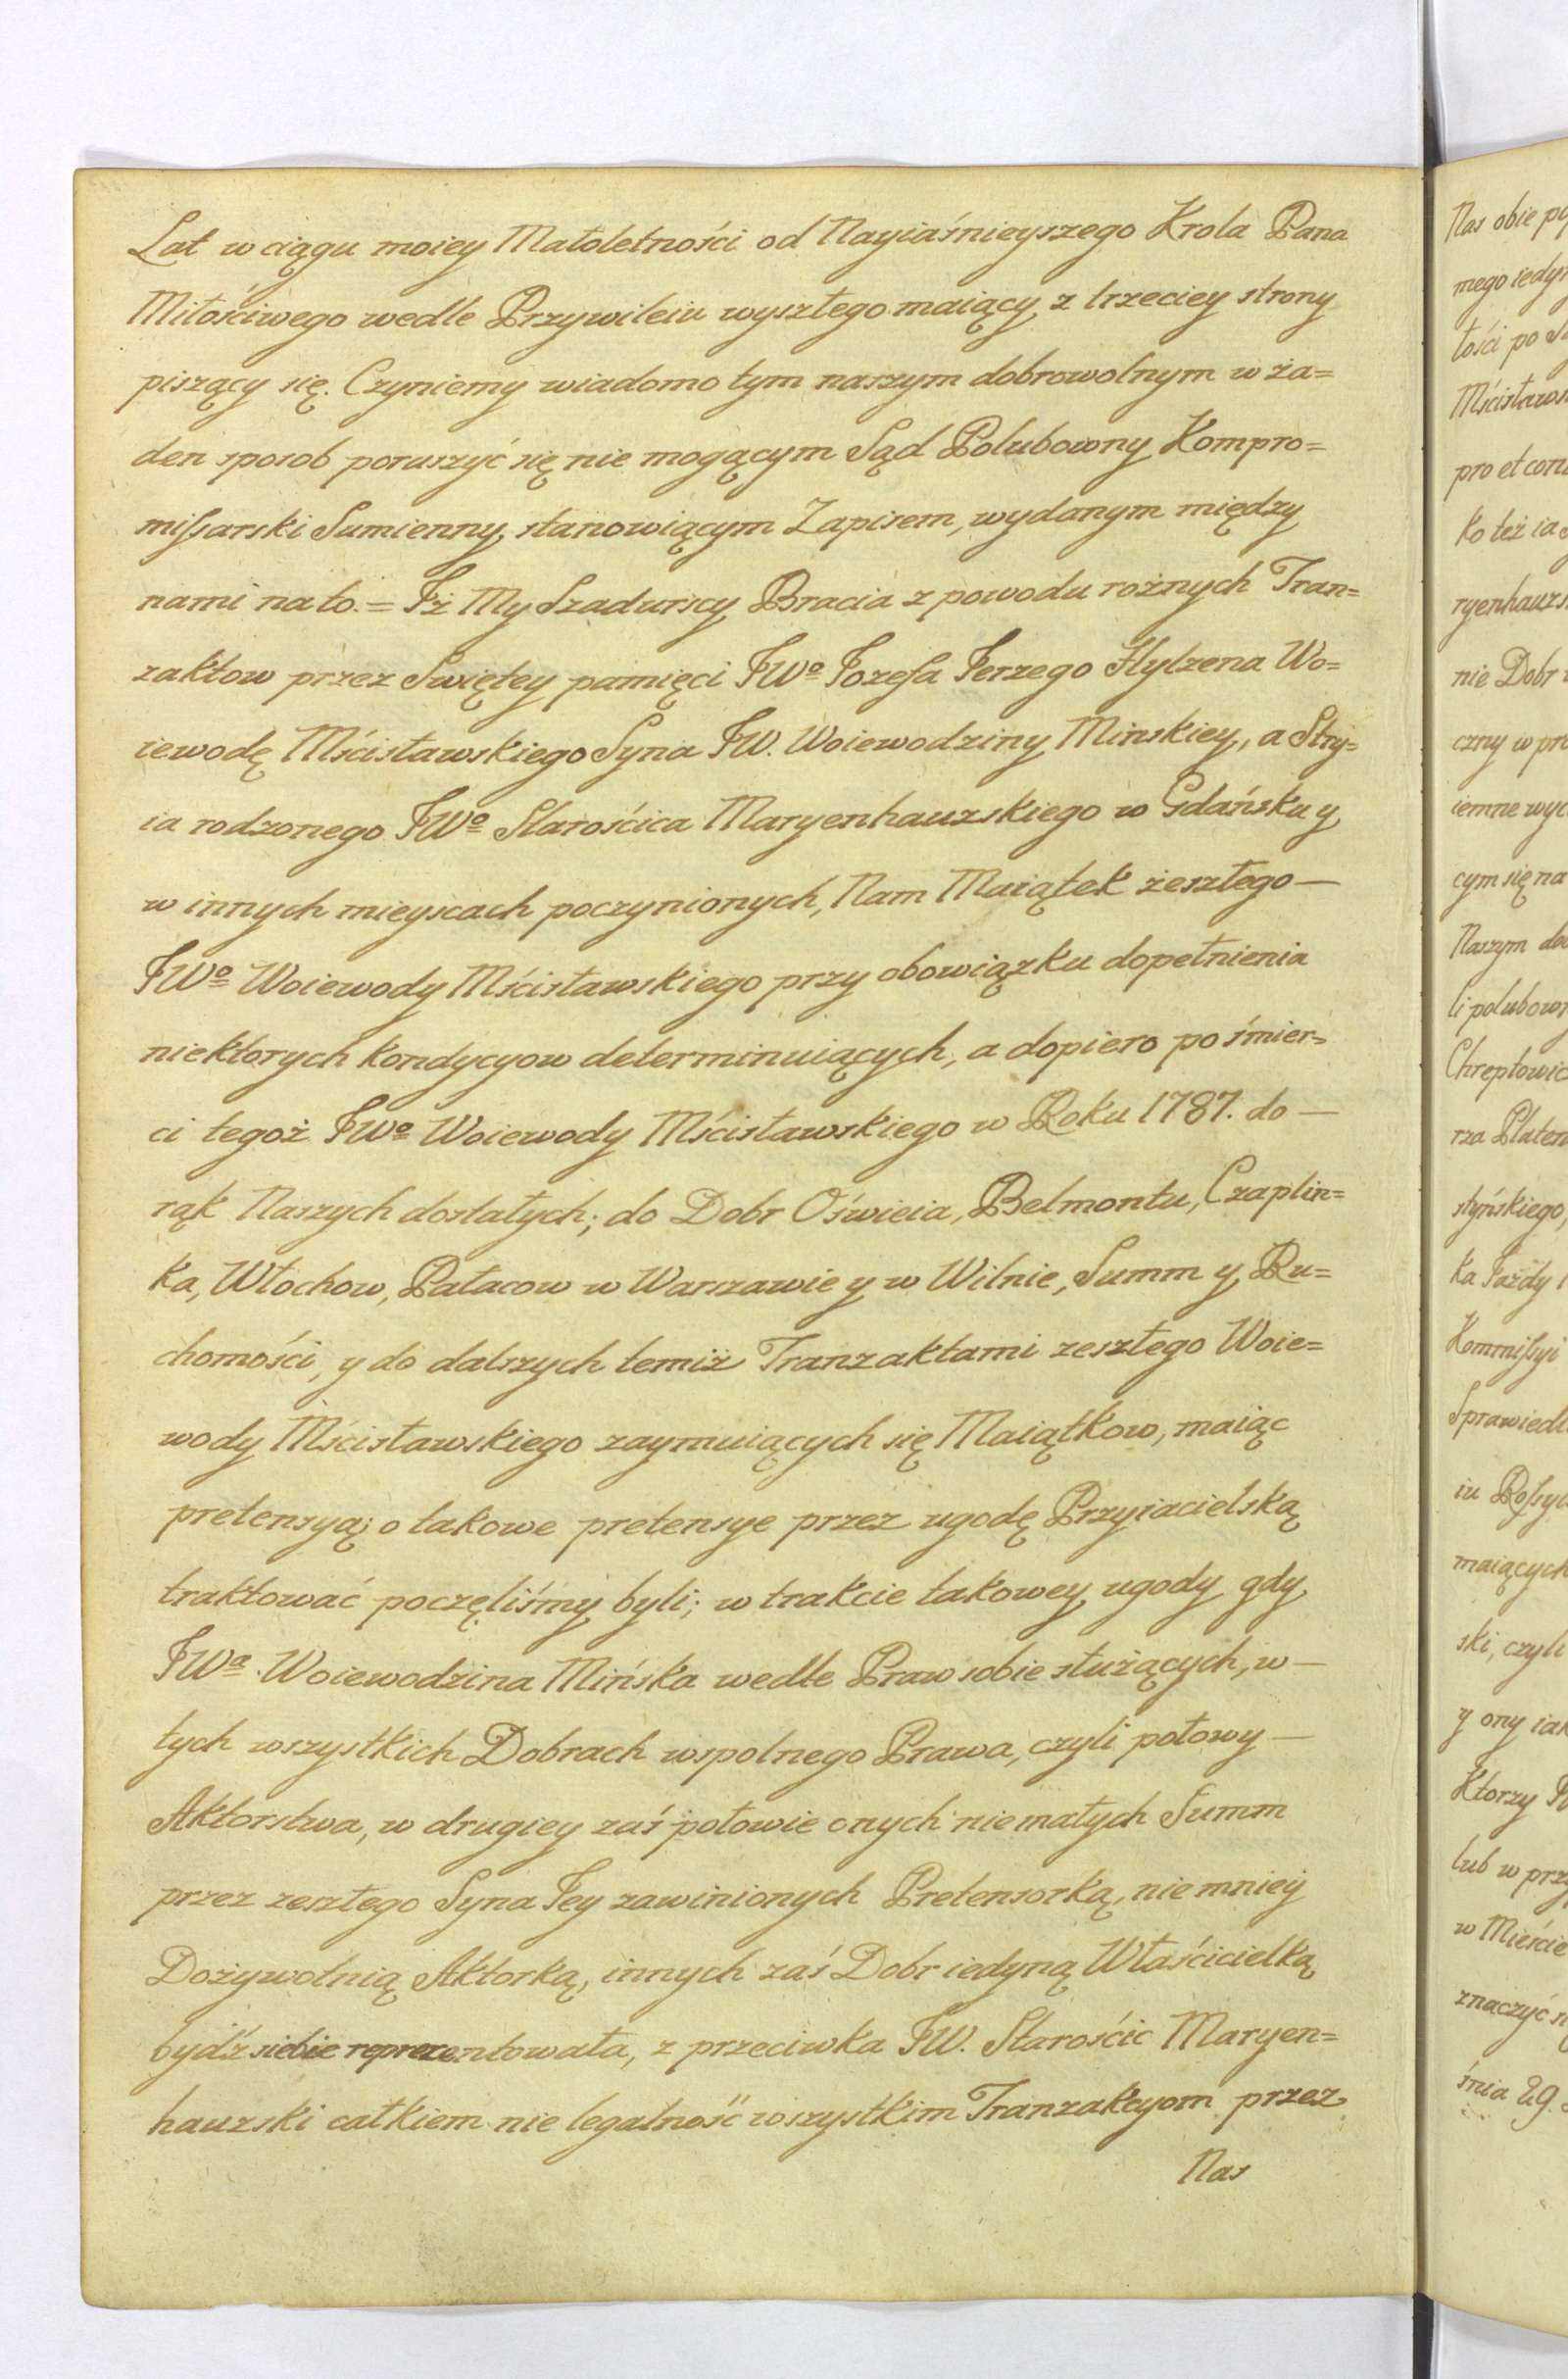 Lat w ciągu moiey Małoletności od Nayiaśnieyszego Krola Pana
Miłościwego wedle Przywileiu wyszłego maiący, z trzeciey strony
piszący się. Czyniemy wiadomo tym naszym dobrowolnym w ża=
den sposob poruszyć się nie mogącym Sąd Polubowny Kompro=
missarski Sumienny stanowiącym Zapisem, wydanym między
nami na to. = Iż My Szadurscy Bracia z powodu rożnych Tran=
zaktow przez Swiętey pamięci JWo Jozefa Jerzego Hylzena Wo=
iewodę Mścisławskiego Syna JW. Woiewodziny Minskiey, a Stry=
ia rodzonego JWo Starościca Maryenhauzskiego w Gdańsku y
w innych mieyscach poczynionych, Nam Maiątek zeszłego —
JWo Woiewody Mścisławskiego przy obowiązku dopełnienia
niektorych kondycyow determinuiących, a dopiero po śmier=
ci tegoż JWo Woiewody Mścisławskiego w Roku 1787. do —
rąk Naszych dostałych; do Dobr Oświeia, Belmontu, Czaplin=
ka, Włochow, Pałacow w Warszawie y w Wilnie, Summ y Ru=
chomości, y do dalszych temiż Tranzaktami zeszłego Woie=
wody Mścisławskiego zaymuiących się Maiątkow, maiąc
pretensyą; o takowe pretensye przez ugodę Przyiacielską
traktować poczęliśmy byli; w trakcie takowey ugody gdy
JWa. Woiewodzina Mińska wedle Praw sobie służących, w —
tych wszystkich Dobrach wspolnego Prawa, czyli połowy —
Aktorstwa, w drugiey zaś połowie onych niemałych Summ
przez zeszłego Syna Jey zawinionych Pretensorką, nie mniey
Dożywotnią Aktorką, innych zaś Dobr iedyną Właścicielką
bydź siebie reprezentowała, z przeciwka JW. Starościc Maryen=
hauzski całkiem nie legalność wszystkim Tranzakcyom przez
Nas
Nas obie
mego
łości po
pro et
Ko też
nie Dobr
czny w
cym się na
Naszym
li
rza
styńskiego,
ka
Kommissyi
iu
maiących
ski, czyli
y ony
Ktorzy
lub w
w Mieście
znaczyć
śnia 29.